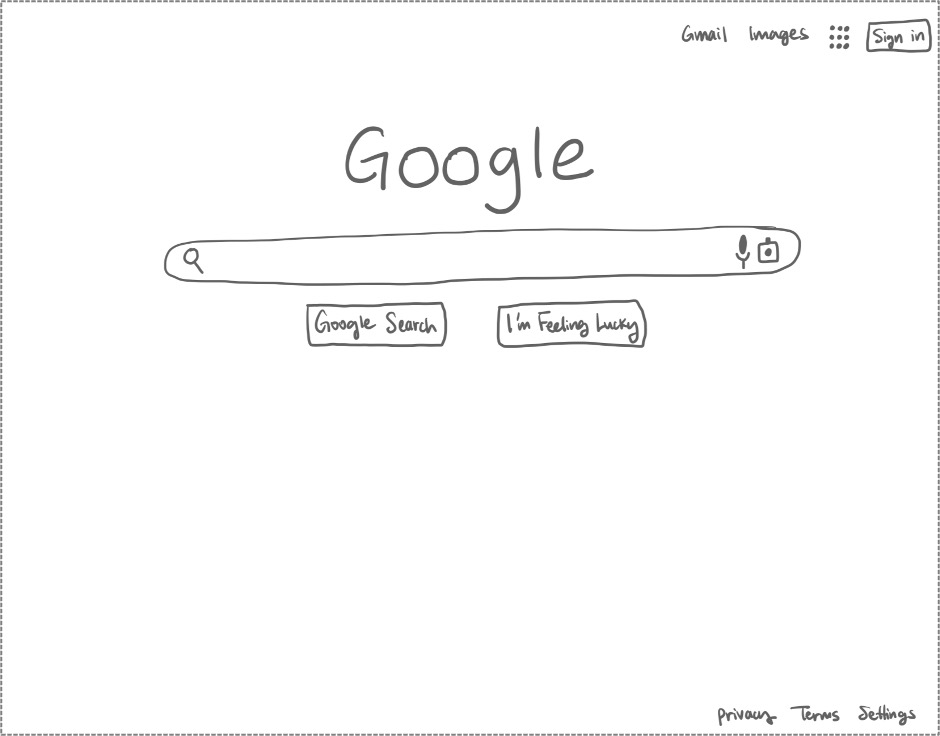 Gmail Images Sign in
Google
Google Search I'm Feeling Lucky
privacy Terms Settings